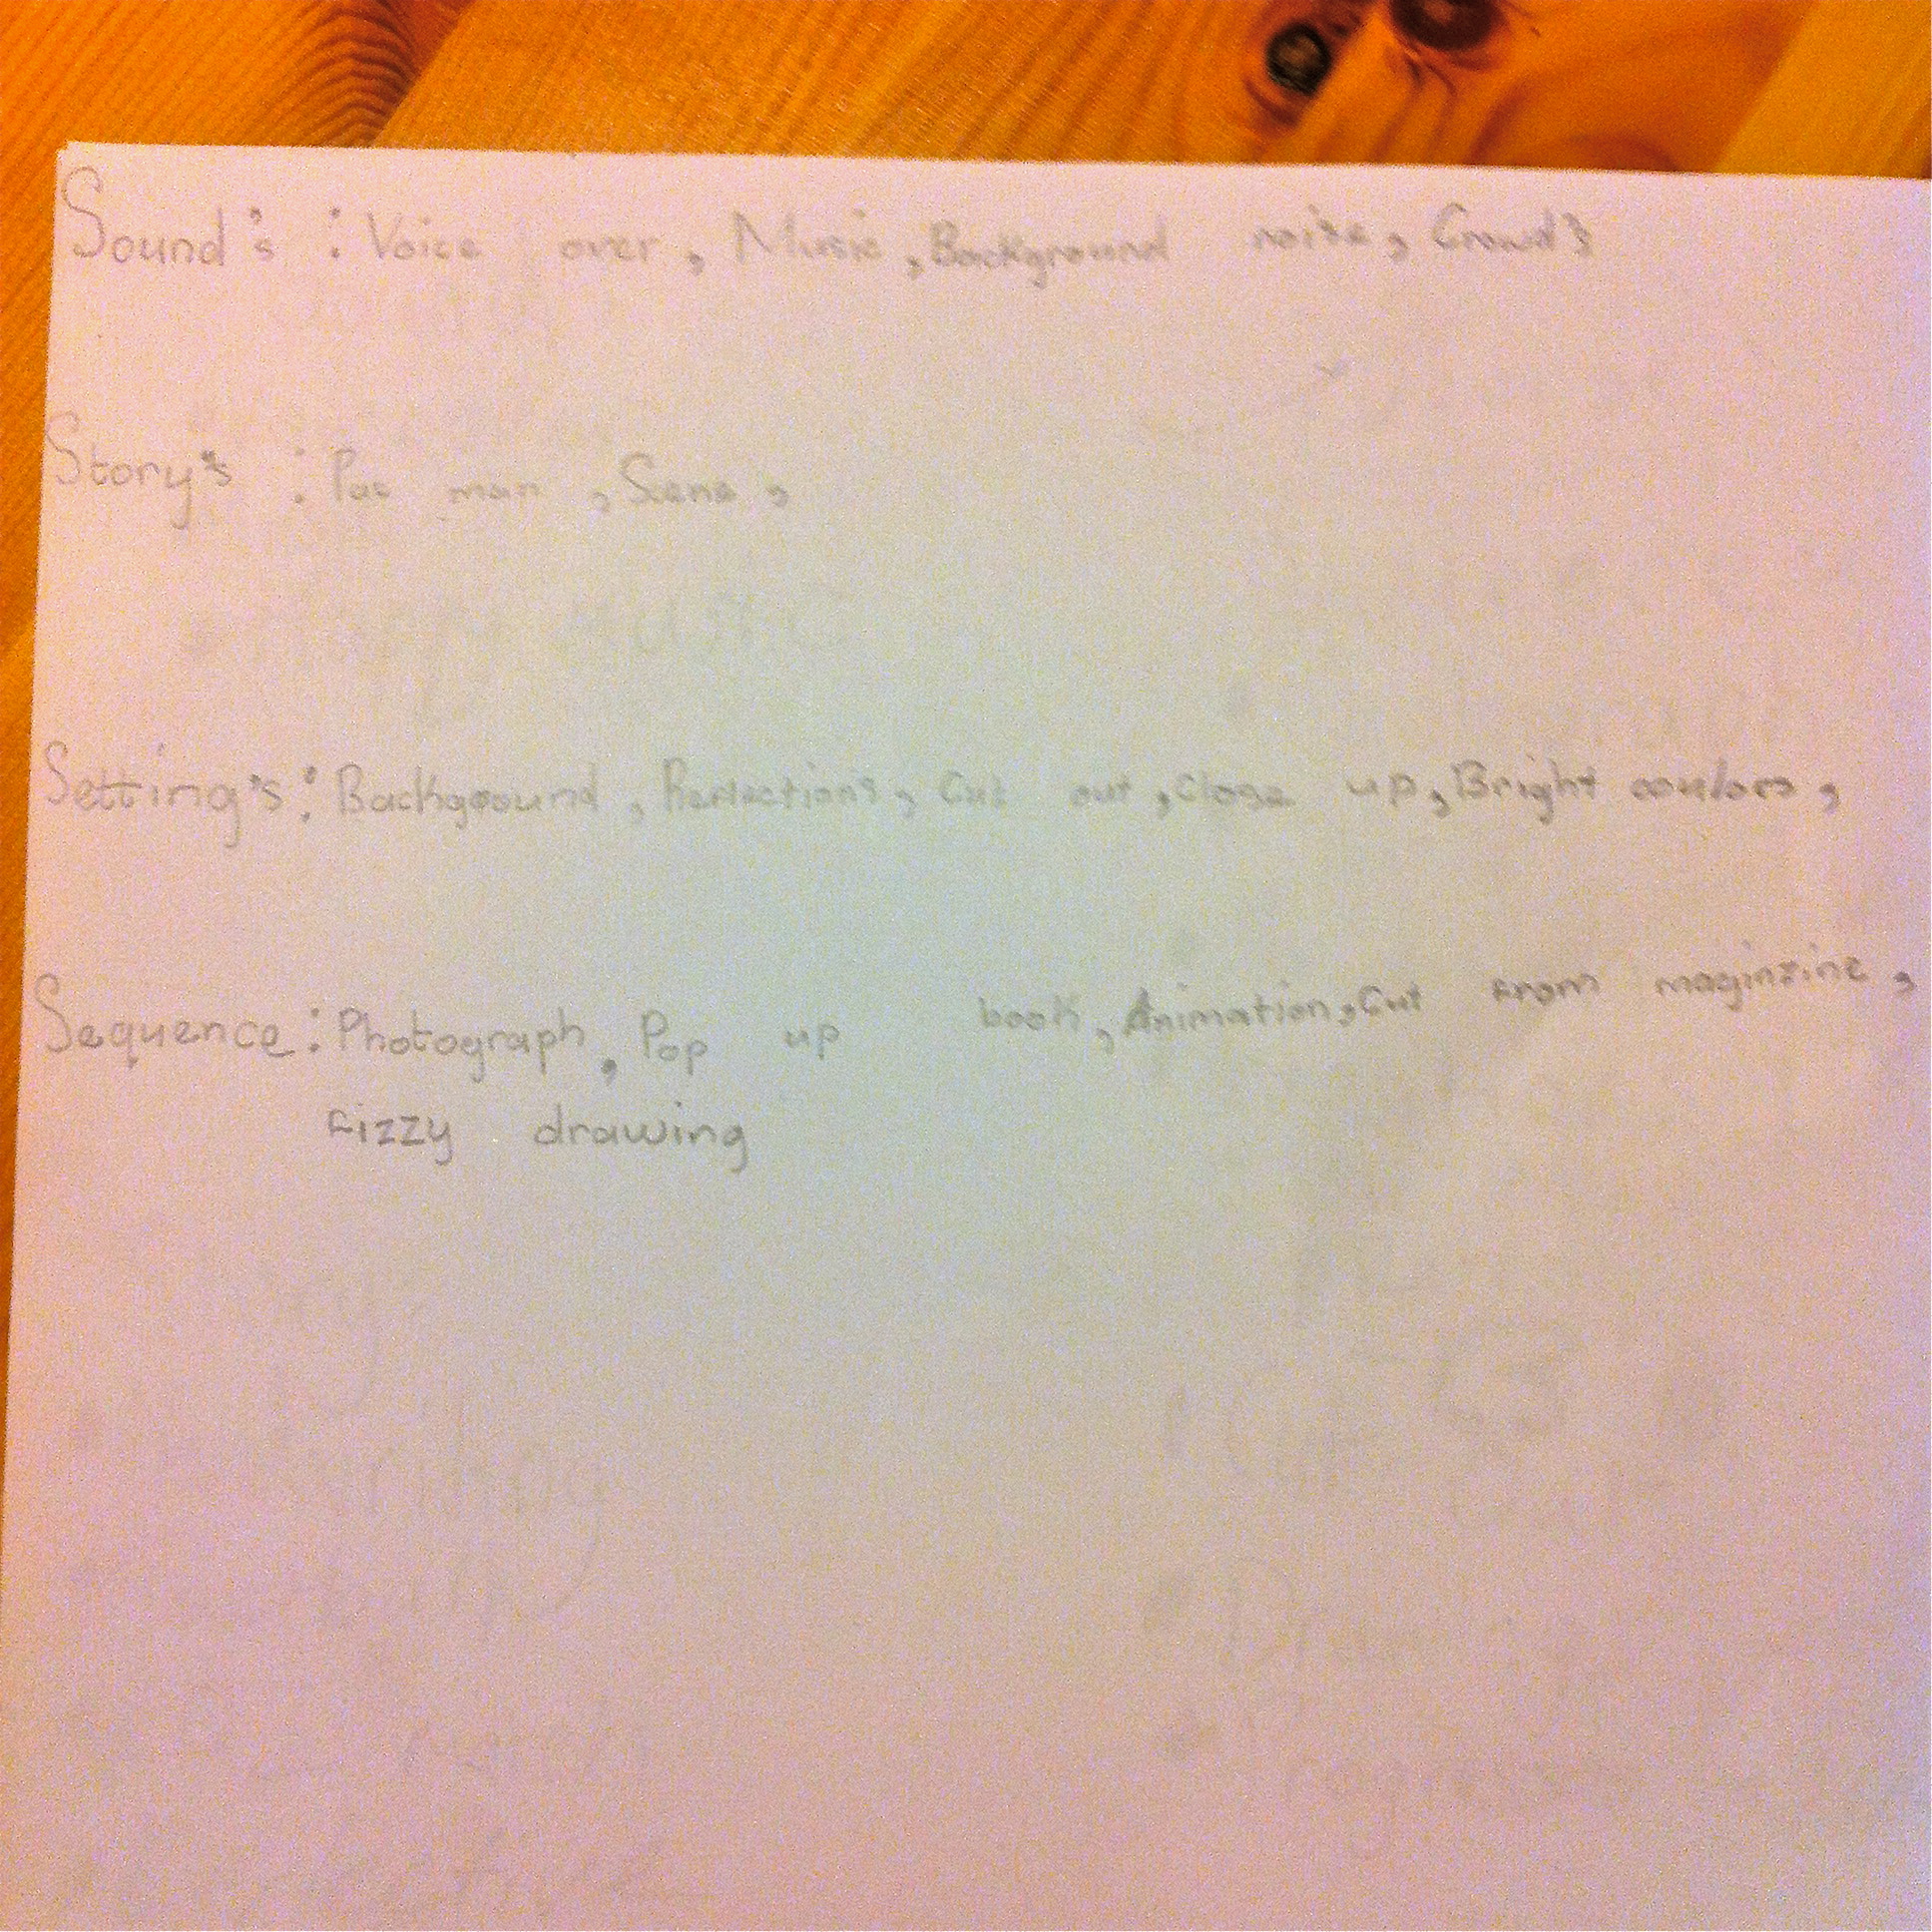 Sound's : Voice over, Music, Background noise, Crowd's
Story's : Pac man, Scene,
Setting's : Background, Reflections, Cut out, Close up, Bright coulors,
Sequence : Photograph, Pop up book, Animation, Cut from maginzine,
Fizzy drawing